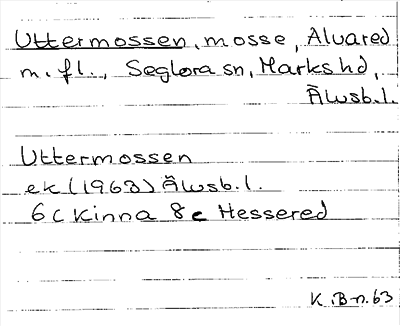 Uttermossen, mosse, Alvared
m.fl., Seglora sn, Marks hd,
Älvsb.l.
Uttermossen
ek (1963) Älvsb.l.
6c Kinna 8e Hessered
K.B-n.63